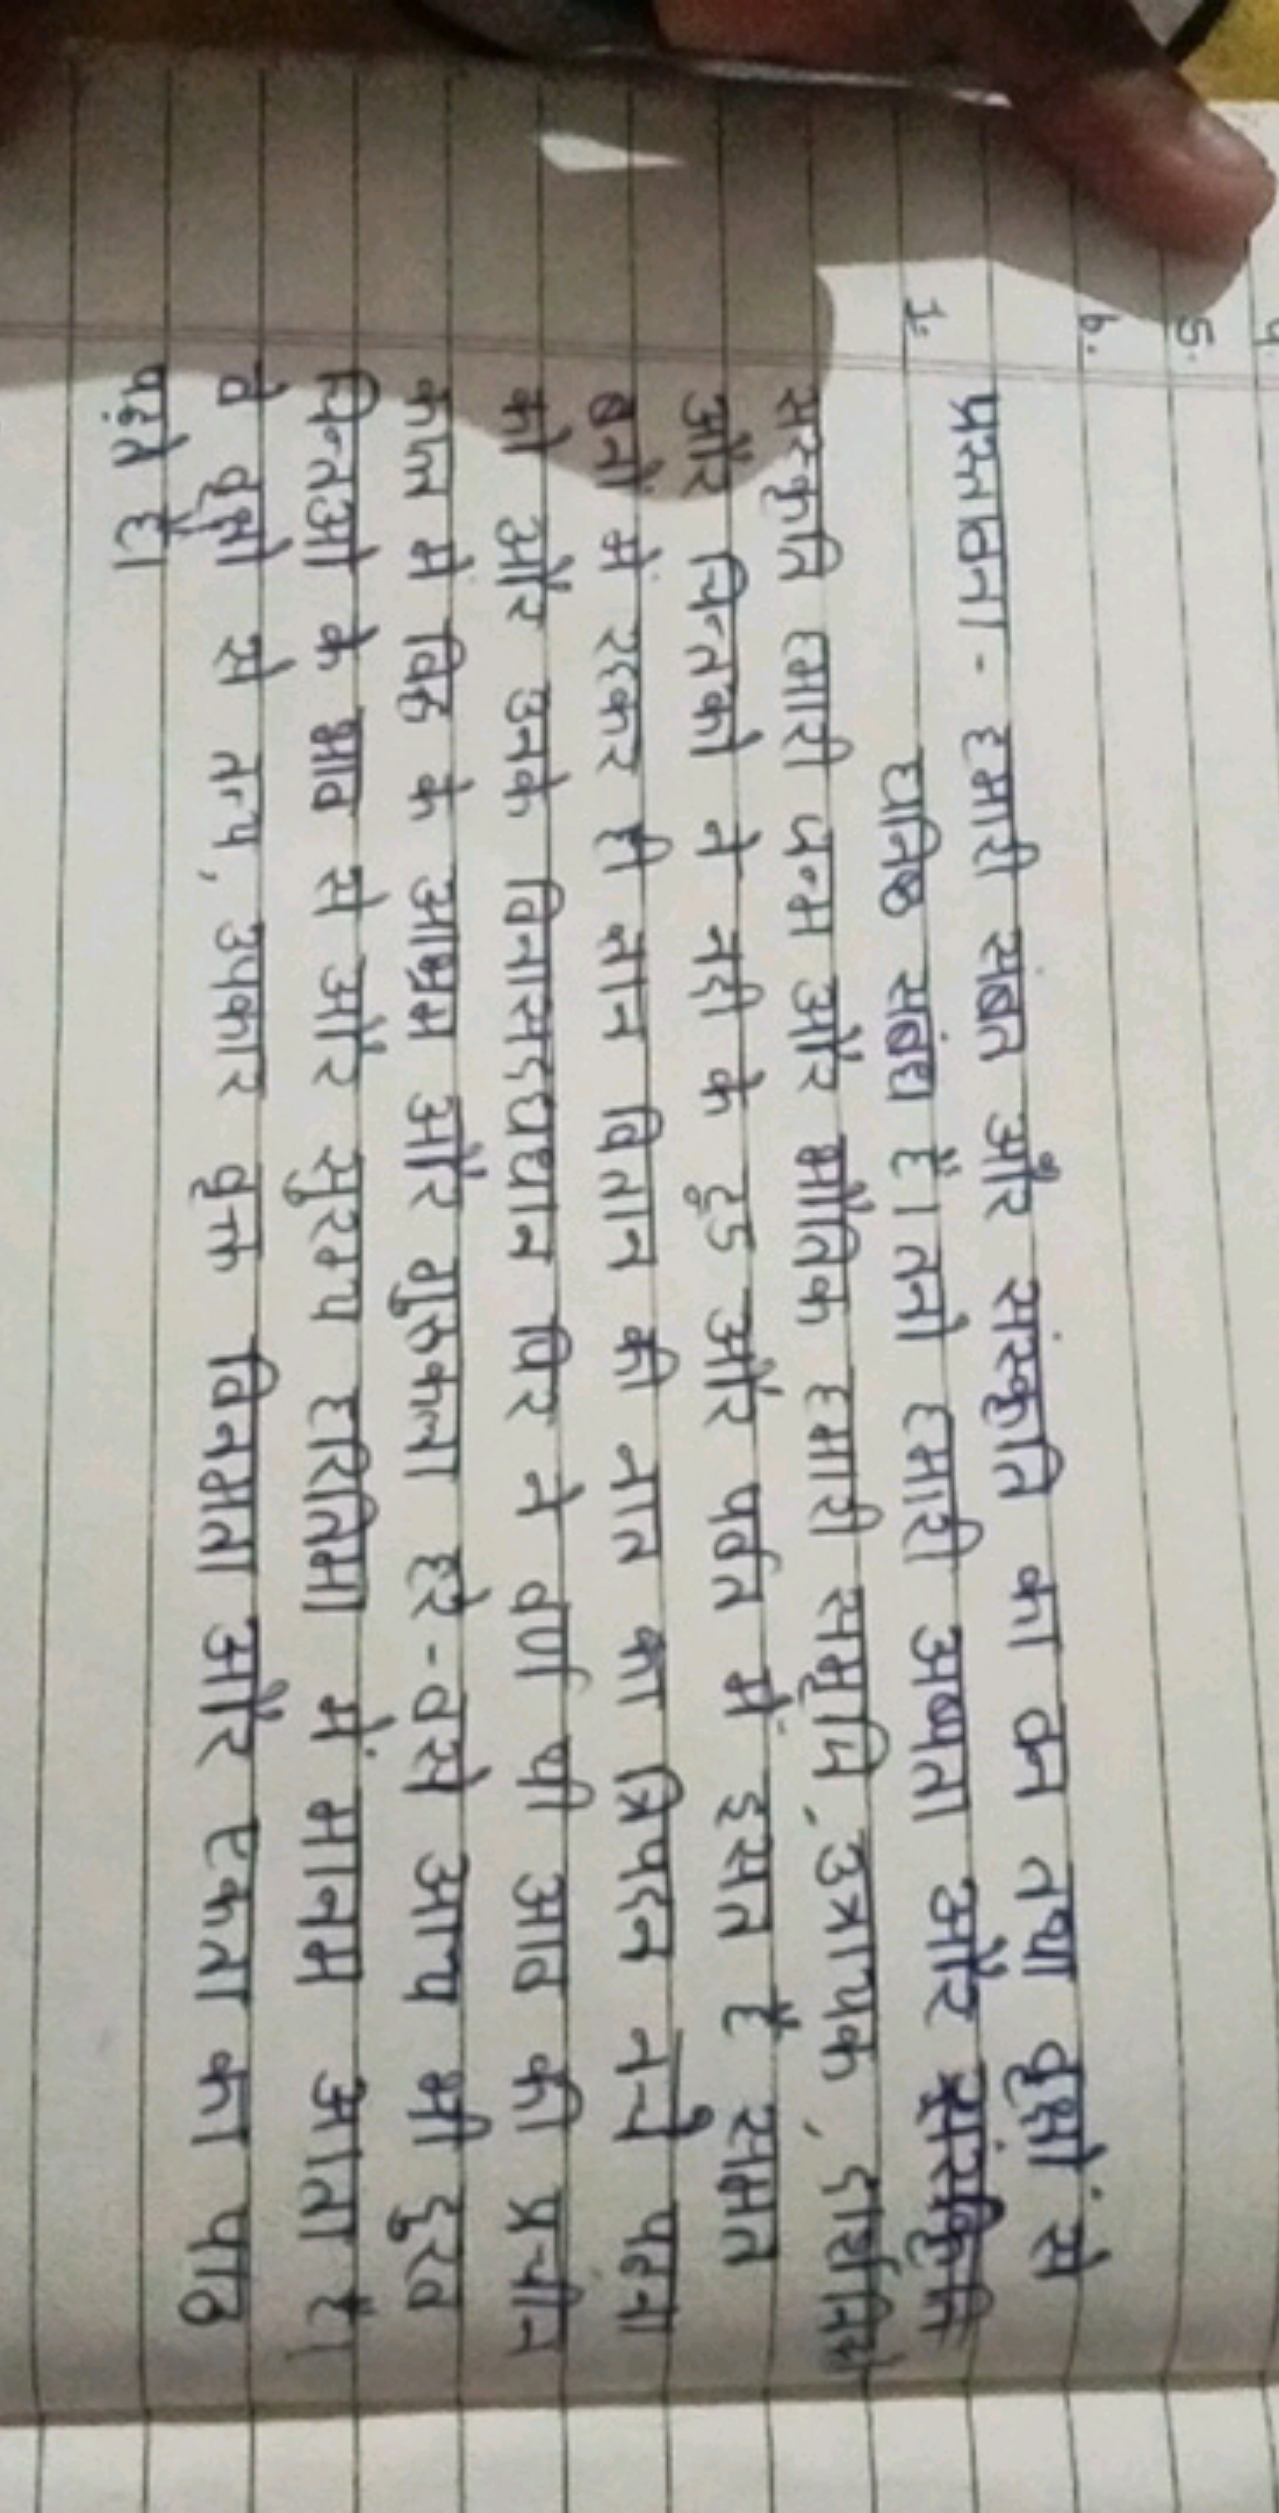 4.
5.
6.
1. प्रस्तावना - हमारी संबत और संस्कृति का वन तथा वृक्षों से
घनिष्ठ सबंध हैं। तनो हमारी अभ्यता और संस्कृति
सस्कृति हमारी धन्म और भौतिक हमारी समृमि, उत्रायक, दार्शनिको
और चिन्तको ने नदी के टूड और पर्वत में इसत हैं समत
बनों में रहकर ही तान वितान की नात का त्रिपदन नन्ये पहना
को और उनके विनासदध्यान विर ने वर्ण पी आव की प्रचीन
कान में विठ के आश्रम और गुरुकला हरे - वसे आय भी दूरव
चिन्तओ के भाव से और सुरम्य हरितिमा में मानम आता है।
वे वृक्षो से तन्य, उपकार वृक्त विनम्रता और एकता का पाठ
पढ़ते हैं।